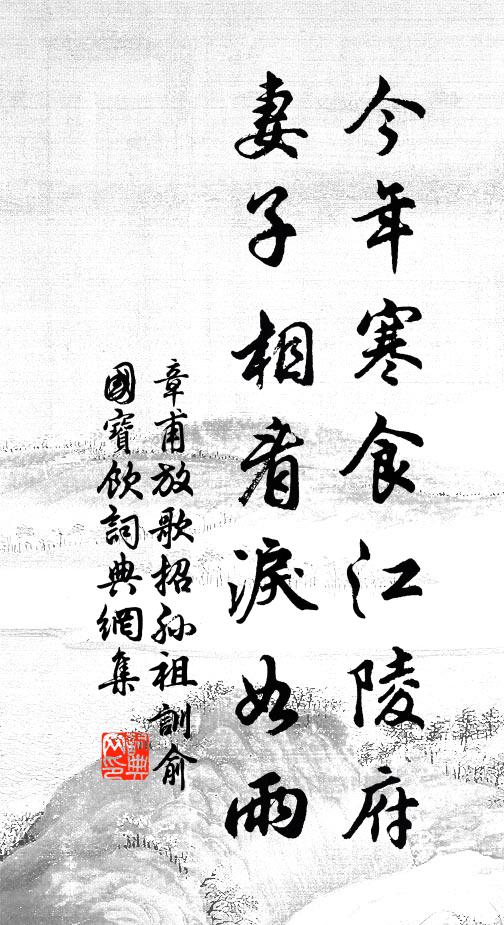 今年寒食江陵府
妻子相看淚如雨
章甫放歌招孙祖訓俞
國寶飲詞典網集